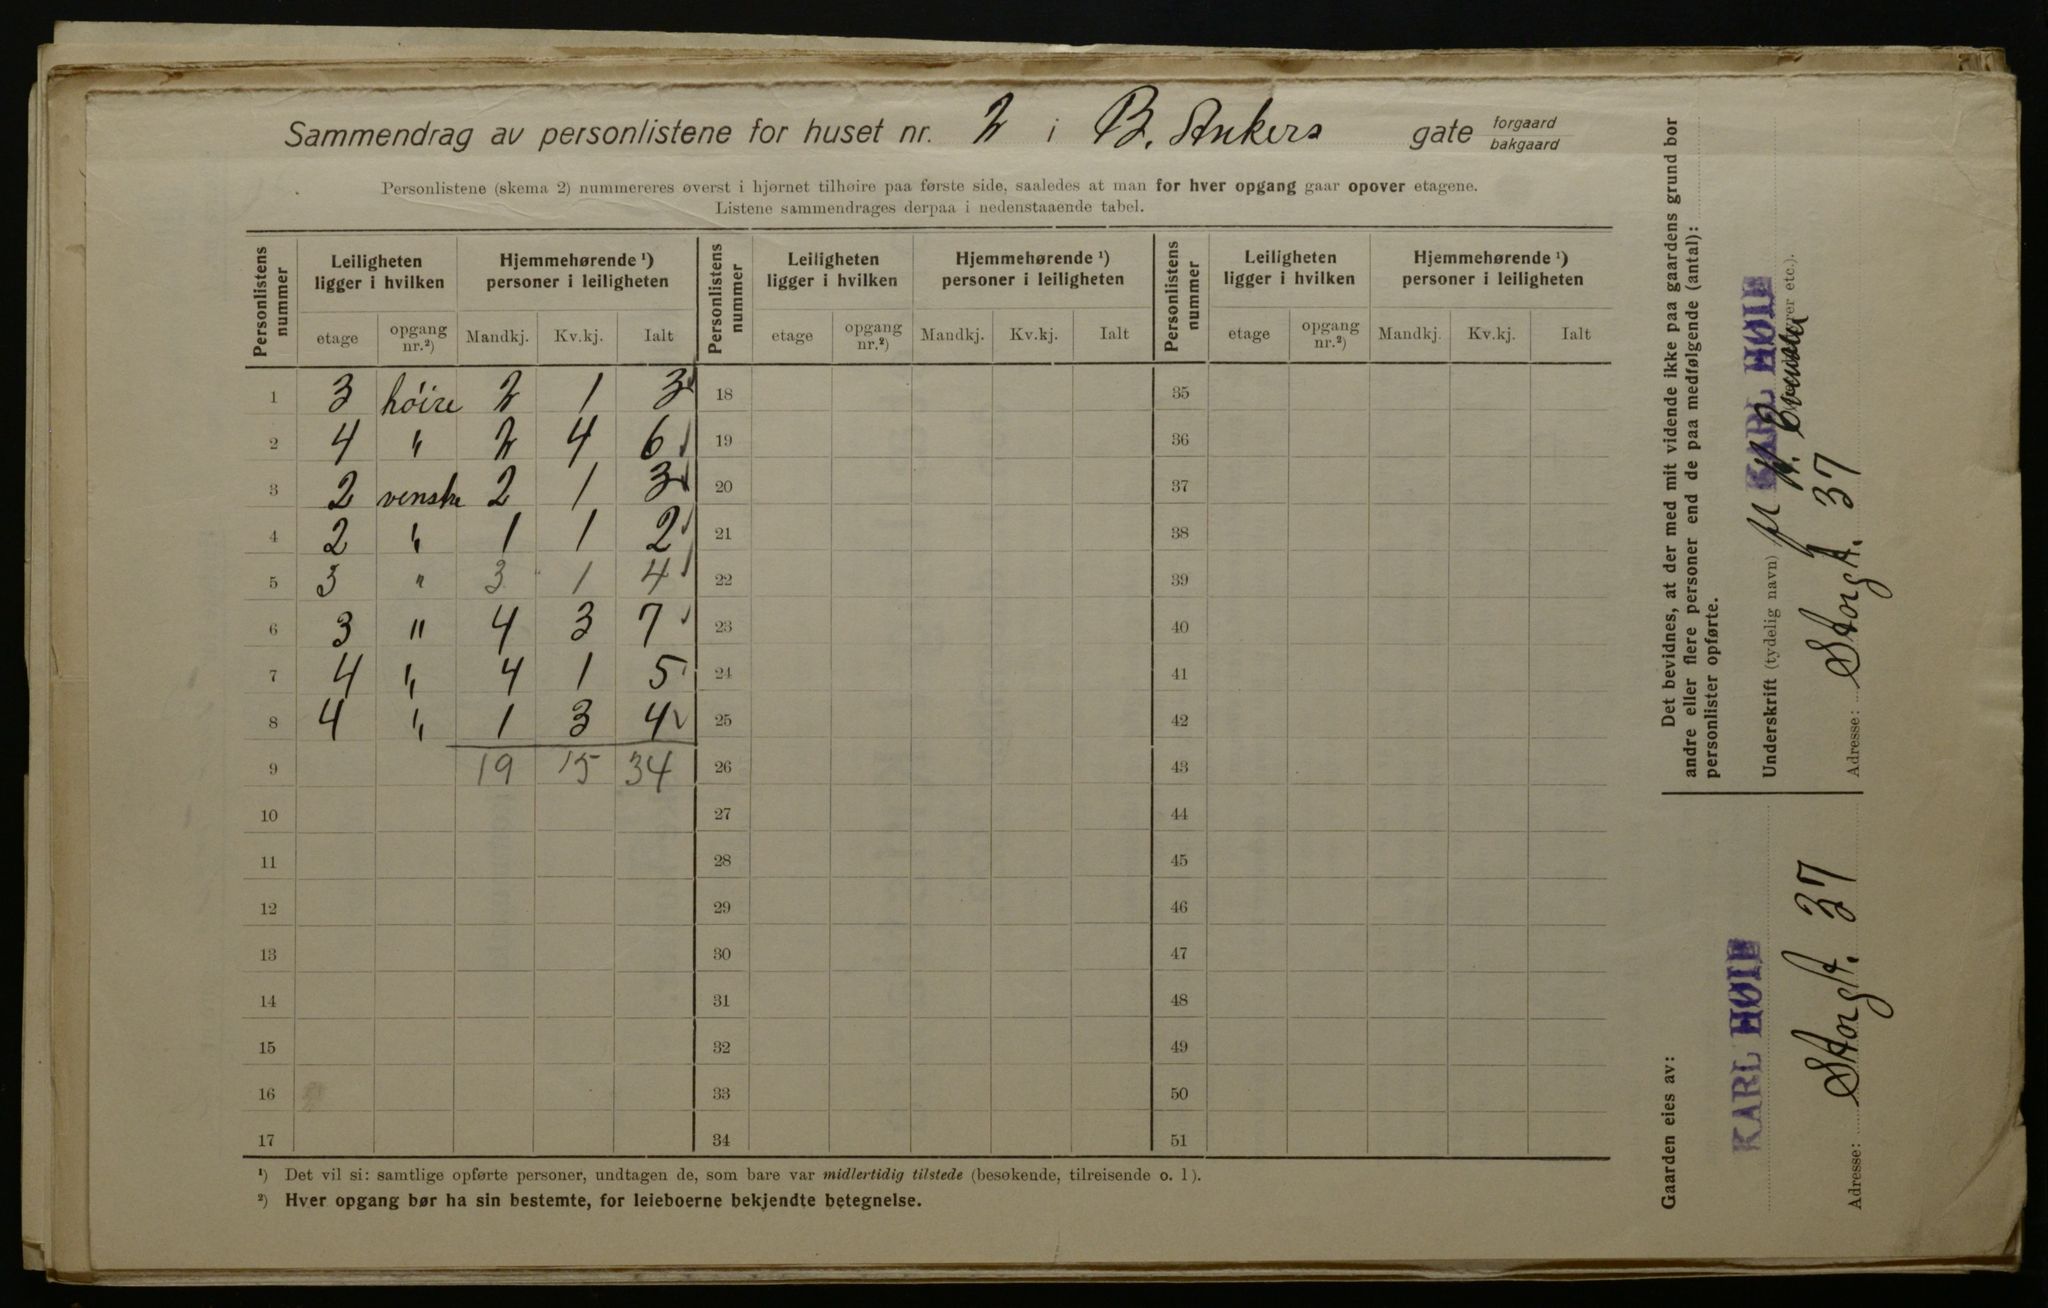 Sammendrag av personlistene for huset nr. 2 i B. Ankers gate forgaard bakgaard
Personlistene (skema 2) nummereres øverst i hjørnet tilhøire paa første side, saaledes at man for hver opgang gaar opover etagene.
Listene sammendrages derpaa i nedenstaaende tabel.
Personlistens nummer Leiligheten ligger i hvilken Hjemmehørende ¹) personer i leiligheten Personlistens nummer Leiligheten ligger i hvilken Hjemmehørende ¹) personer i leiligheten Personlistens nummer Leiligheten ligger i hvilken Hjemmehørende ¹) personer i leiligheten
etage opgang nr.²) Mandkj. Kv.kj. Ialt etage opgang nr.²) Mandkj. Kv.kj. Ialt etage opgang nr.²) Mandkj. Kv.kj. Ialt
1 3 høire 2 1 3 18 35
2 4 " 2 4 6 19 36
3 2 venstre 2 1 3 20 37
4 2 " 1 1 2 21 38
5 3 " 3 1 4 22 39
6 3 " 4 3 7 23 40
7 4 " 4 1 5 24 41
8 4 " 1 3 4 25 42
9 19 15 34 26 43
10 27 44
11 28 45
12 29 46
13 30 47
14 31 48
15 32 49
16 33 50
17 34 51
¹) Det vil si: samtlige opførte personer, undtagen de, som bare var midlertidig tilstede (besøkende, tilreisende o. l).
²) Hver opgang bør ha sin bestemte, for leieboerne bekjendte betegnelse.
Det bevidnes, at der med mit vidende ikke paa gaardens grund bor
andre eller flere personer end de paa medfølgende (antal):
personlister opførte.
Underskrift (tydelig navn)
KARL HØIE
Adresse: Storgt. 37
Gaarden eies av:
KARL HØIE
Adresse: Storgt. 37